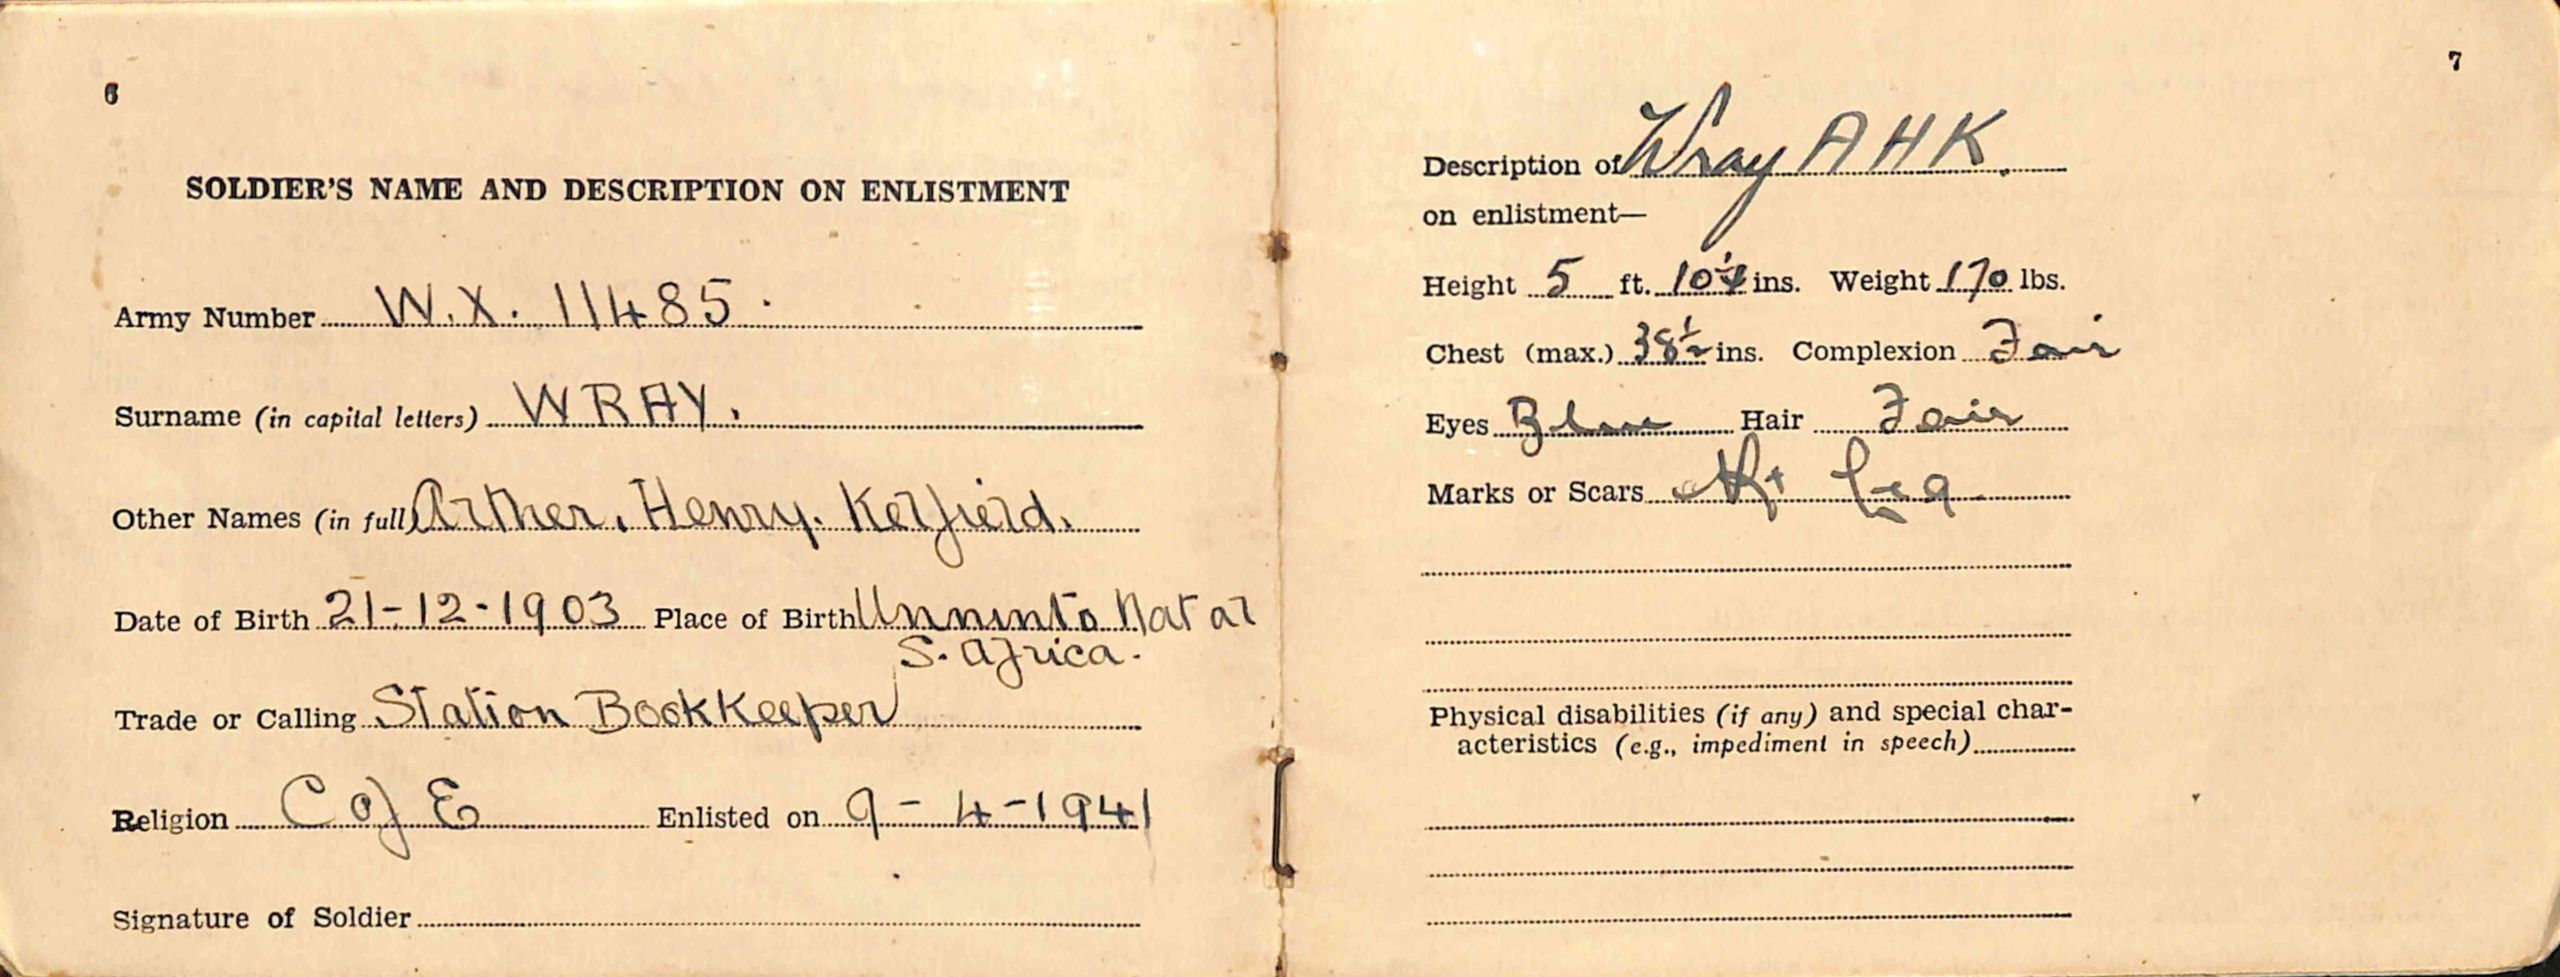 6
SOLDIER'S NAME AND DESCRIPTION ON ENLISTMENT
Army Number W.X. 11485.
Surname (in capital letters) WRAY.
Other Names (in full) Arther. Henry. Kelfield.
Date of Birth 21-12-1903 Place of Birth Natal
S. Africa.
Trade or Calling Station Bookkeeper
Religion C of E Enlisted on 9-4-1941
Signature of Soldier
7
Description of Wray A H K.
on enlistment—
Height 5 ft. ins. Weight 170 lbs.
Chest (max.) 38½ ins. Complexion Fair
Eyes Blue Hair Fair
Marks or Scars Rt Leg
Physical disabilities (if any) and special char-
acteristics (e.g., impediment in speech)